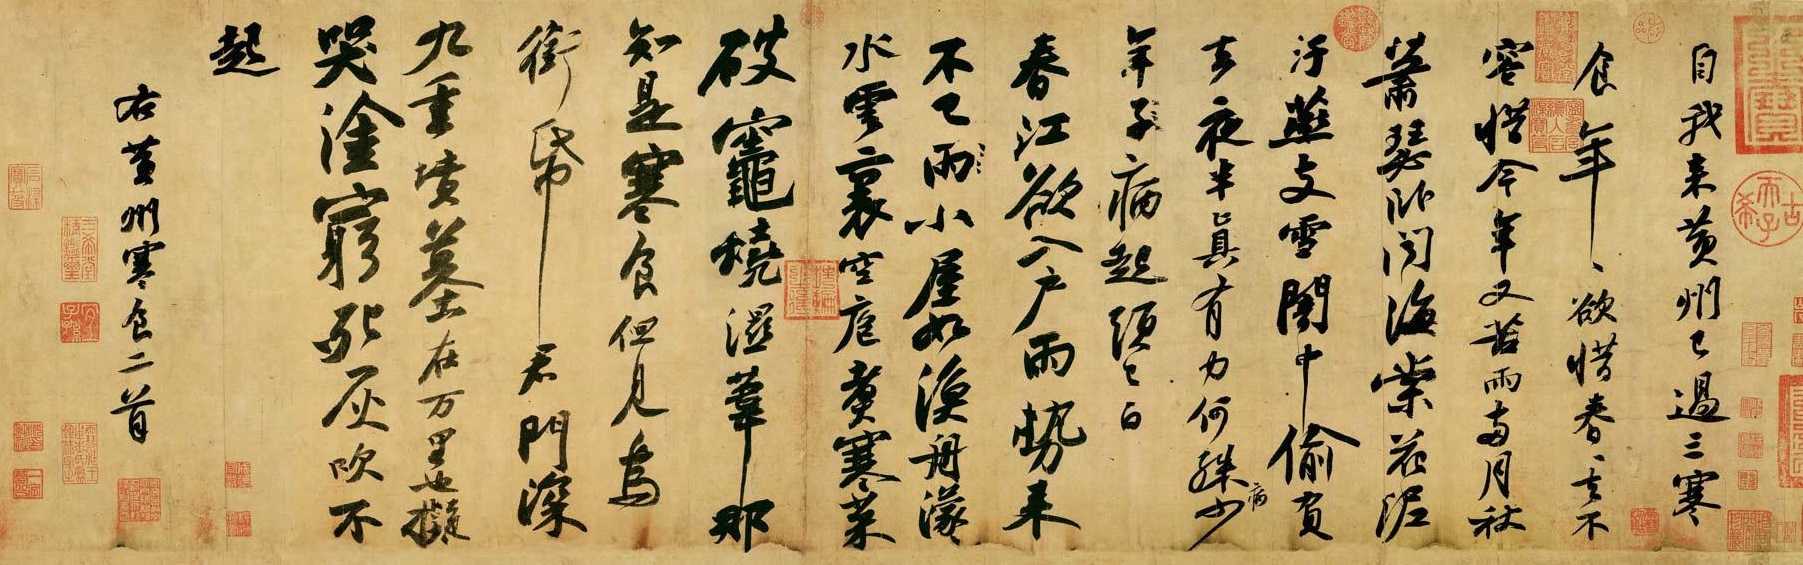 自我来黄州已過三寒
食年、欲惜春、去不
容惜今年又苦雨兩月秋
蕭瑟卧聞海棠花泥
汙燕支雪闇中偷負
去夜半真有力何殊少
病
年子病起頭已白
春江欲入户雨勢来
不已雨小屋如漁舟濛
水雲裏空庖煮寒菜
破竈燒濕葦那
知是寒食但見烏
銜帋君門深
九重墳墓在万里也擬
哭塗窮死灰吹不
起
右黄州寒食二首
古希天子